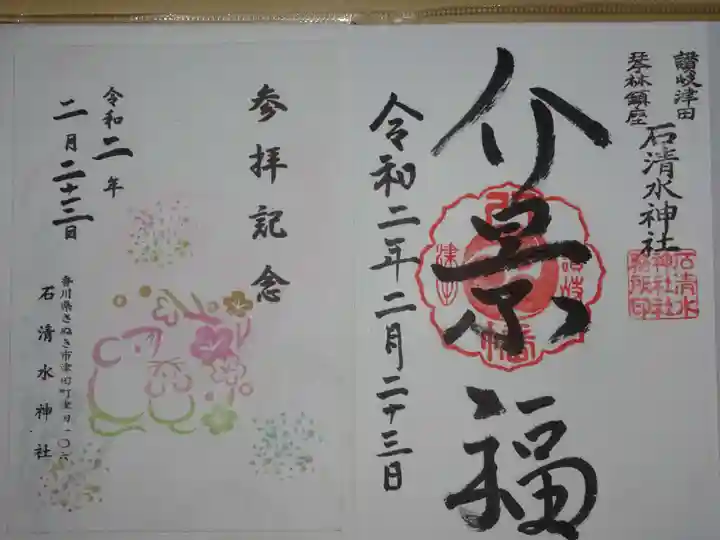 讃岐津田
琴林鎮座
石清水神社
介景福
令和二年二月二十三日
石清水
神社社
務所印
参拝記念
令和二年
二月二十三日
香川県さぬき市津田町
石清水神社